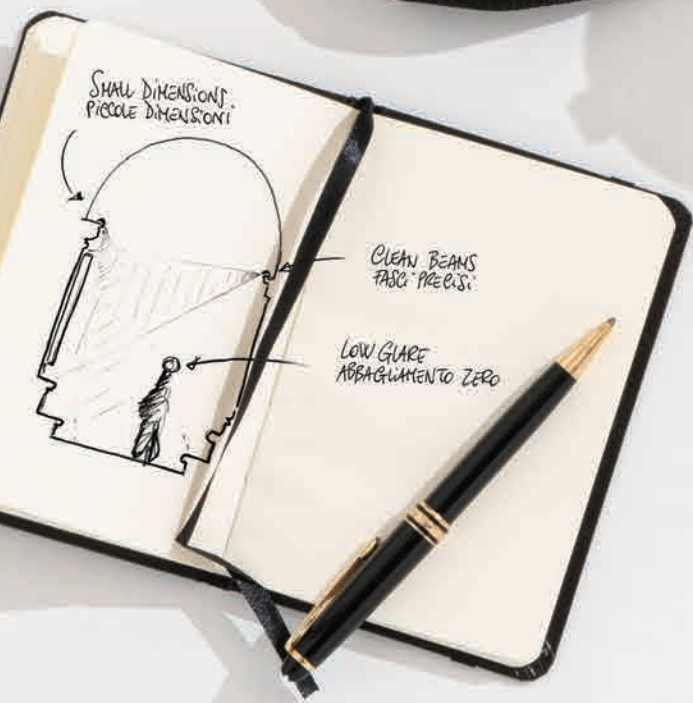 SMALL DIMENSIONS
PICCOLE DIMENSIONI
CLEAN BEAMS
FASCI PRECISI
LOW GLARE
ABBAGLIAMENTO ZERO